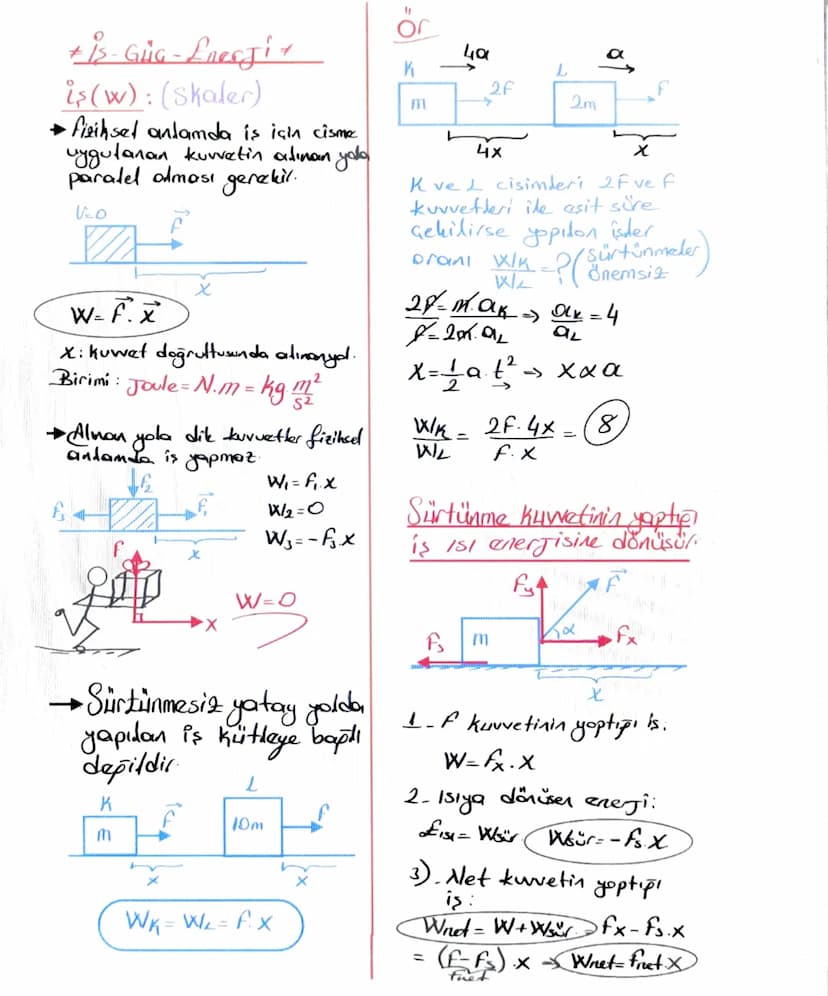 * İş-Güç-Enerji *
iş(w) : (skaler)
→ fiziksel anlamda iş için cisme
uygulanan kuvvetin alınan yola
paralel olması gerekir.
V=0
F
x
W=F.x
x: kuvvet doğrultusunda alınan yol.
Birimi: Joule=N.m=kg.m²/s²
→ Alınan yola dik kuvvetler fiziksel
anlamda iş yapmaz.
f₂
f₃
f₁
x
W₁=f₁.x
W₂=0
W₃=-f₃.x
F
x
W=0
→ Sürtünmesiz yatay yolda
yapılan iş kütleye bağlı
değildir.
K
m
F
x
L
10m
f
x
WK=WL=f.x
ÖR
4a
a
K
m
2F
L
2m
F
4x
x
K ve L cisimleri 2F ve F
kuvvetleri ile eşit süre
çekilirse yapılan işler
oranı WK/WL=? (sürtünmeler önemsiz)
2F=m.aK / F=2m.aL ⇒ aK/aL=4
x=1/2 a.t² → x∝a
WK/WL = 2F.4x/F.x = 8
Sürtünme kuvvetinin yaptığı
iş ısı enerjisine dönüşür.
Fy
F
α
Fx
Fs
m
x
1- F kuvvetinin yaptığı iş.
W=fx.x
2- Isıya dönüşen enerji:
Eısı=Wsür Wsür=-fs.x
3). Net kuvvetin yaptığı
iş:
Wnet=W+Wsür=fx-fs.x
=(f-fs).x → Wnet=fnet.x
fnet